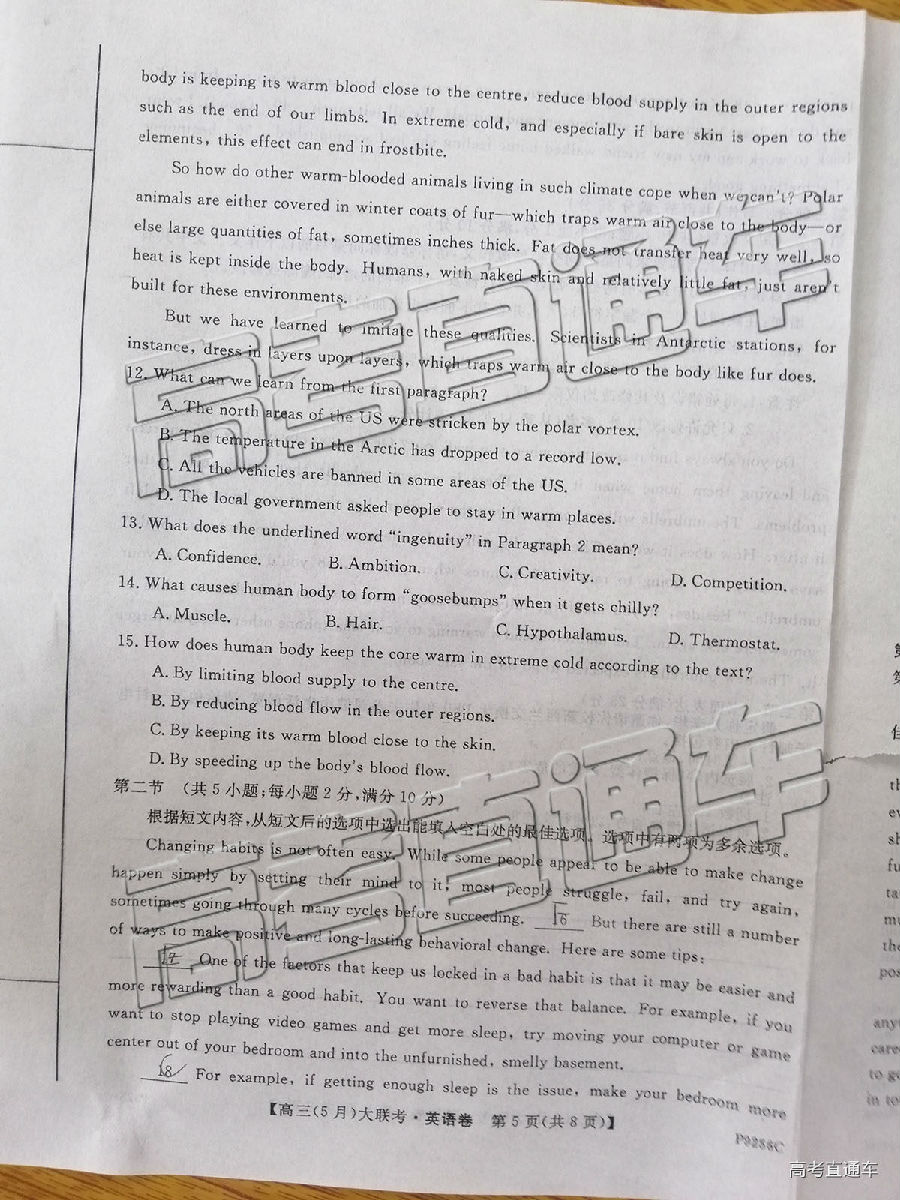 body is keeping its warm blood close to the centre, reduce blood supply in the outer regions
such as the end of our limbs. In extreme cold, and especially if bare skin is open to the
elements, this effect can end in frostbite.
So how do other warm-blooded animals living in such climate cope when we can't? Polar
animals are either covered in winter coats of fur—which traps warm air close to the body—or
else large quantities of fat, sometimes inches thick. Fat does not transfer heat very well, so
heat is kept inside the body. Humans, with naked skin and relatively little fat, just aren't
built for these environments.
But we have learned to imitate these qualities. Scientists in Antarctic stations, for
instance, dress in layers upon layers, which traps warm air close to the body like fur does.
12. What can we learn from the first paragraph?
A. The north areas of the US were stricken by the polar vortex.
B. The temperature in the Arctic has dropped to a record low.
C. All the vehicles are banned in some areas of the US.
D. The local government asked people to stay in warm places.
13. What does the underlined word “ingenuity” in Paragraph 2 mean?
A. Confidence. B. Ambition. C. Creativity. D. Competition.
14. What causes human body to form “goosebumps” when it gets chilly?
A. Muscle. B. Hair. C. Hypothalamus. D. Thermostat.
15. How does human body keep the core warm in extreme cold according to the text?
A. By limiting blood supply to the centre.
B. By reducing blood flow in the outer regions.
C. By keeping its warm blood close to the skin.
D. By speeding up the body's blood flow.
第二节 (共5小题;每小题2分,满分10分)
根据短文内容,从短文后的选项中选出能填入空白处的最佳选项。选项中有两项为多余选项。
Changing habits is not often easy. While some people appear to be able to make change
happen simply by setting their mind to it, most people struggle, fail, and try again,
sometimes going through many cycles before succeeding. 16 But there are still a number
of ways to make positive and long-lasting behavioral change. Here are some tips:
17 One of the factors that keep us locked in a bad habit is that it may be easier and
more rewarding than a good habit. You want to reverse that balance. For example, if you
want to stop playing video games and get more sleep, try moving your computer or game
center out of your bedroom and into the unfurnished, smelly basement.
18 For example, if getting enough sleep is the issue, make your bedroom more
【高三(5月)大联考·英语卷 第5页(共8页)】
P9286C
高考直通车
高考直通车
高考直通车